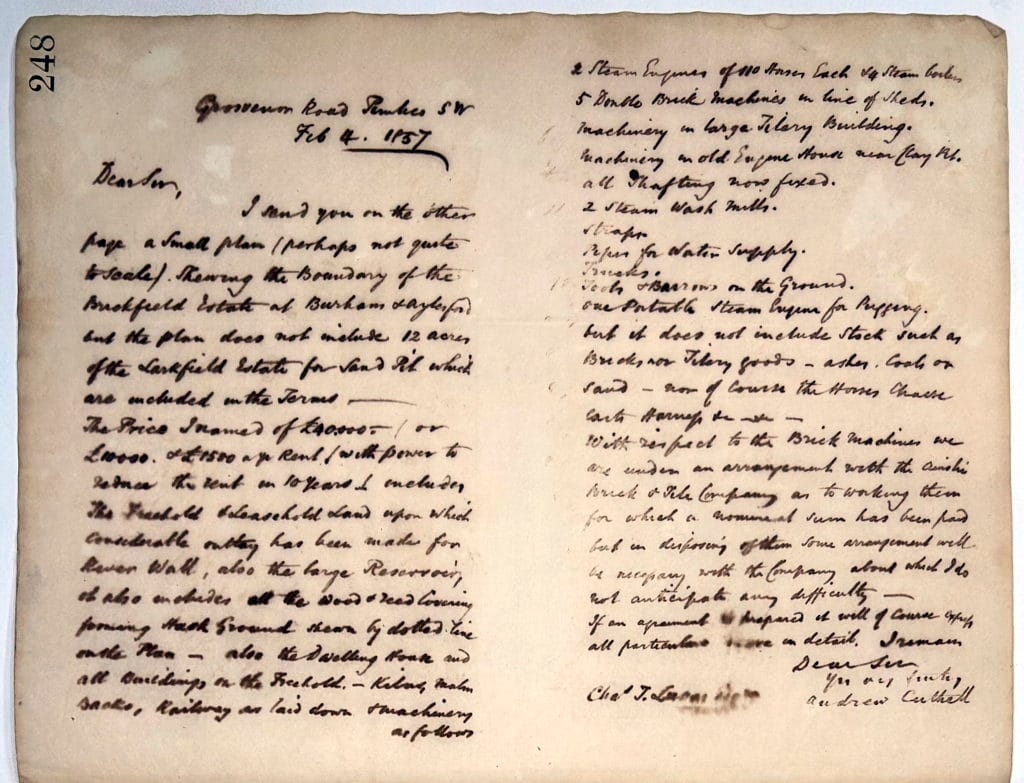 248
Grosvenor Road Pimlico S W
Feb 4. 1857
Dear Sir,
I send you on the other
page a small plan (perhaps not quite
to scale). Shewing the Boundary of the
Brickfield Estate at Burham & Aylesford
but the plan does not include 12 acres
of the Larkfield Estate for Sand Pit which
are included in the Terms —
The Price I named of £40000 - (or
£10000. & £1500 a yr Rent (with power to
reduce the rent in 10 years) includes
The Freehold & Leasehold Land upon which
considerable outlay has been made for
River Wall, also the large Reservoir,
it also includes all the wood & reed Covering
forming Hack Ground shewn by dotted line
on the Plan — also the Dwelling House and
all Buildings on the Freehold. — Kilns, malm
Backs, Railway as laid down & machinery
as follows
2 Steam Engines of 110 Horses Each & 4 Steam boilers
5 Double Brick Machines in line of Sheds.
Machinery in large Tilery Building.
Machinery in old Engine House near Clay Pit.
all Shafting now fixed.
2 Steam Wash Mills.
Straps
Pipes for Water Supply.
Trucks.
Tools & Barrows on the Ground.
One Portable Steam Engine for Pugging.
but it does not include Stock such as
Bricks nor Tilery goods — ashes. Coals or
Sand — nor of Course the Horses Chaise
Carts Harness &c — &c —
With respect to the Brick Machines we
are under an arrangement with the Ainslie
Brick & Tile Company as to working them
for which a nominal sum has been paid
but in disposing of them some arrangement will
be necessary with the Company about which I do
not anticipate any difficulty —
If an agreement is prepared it will of Course express
all particulars more in detail. I remain
Dear Sir
Yrs very truly
Andrew Cuthell
Chas T. Lucas Esqre